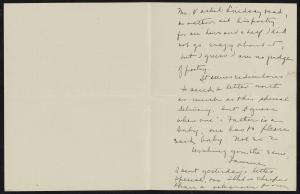 Mr. Vachel Lindsay read,
or rather act his poetry
for an hour and a half. I did
not go crazy about it,
but I guess I am no judge
of poetry.
It seems ridiculous
to send a letter worth
as much as this special
delivery, but I guess
when one's Father is an
baby, one has to please
such baby. Not so?
Wishing you the same,
I sent yesterday's letter
special, too